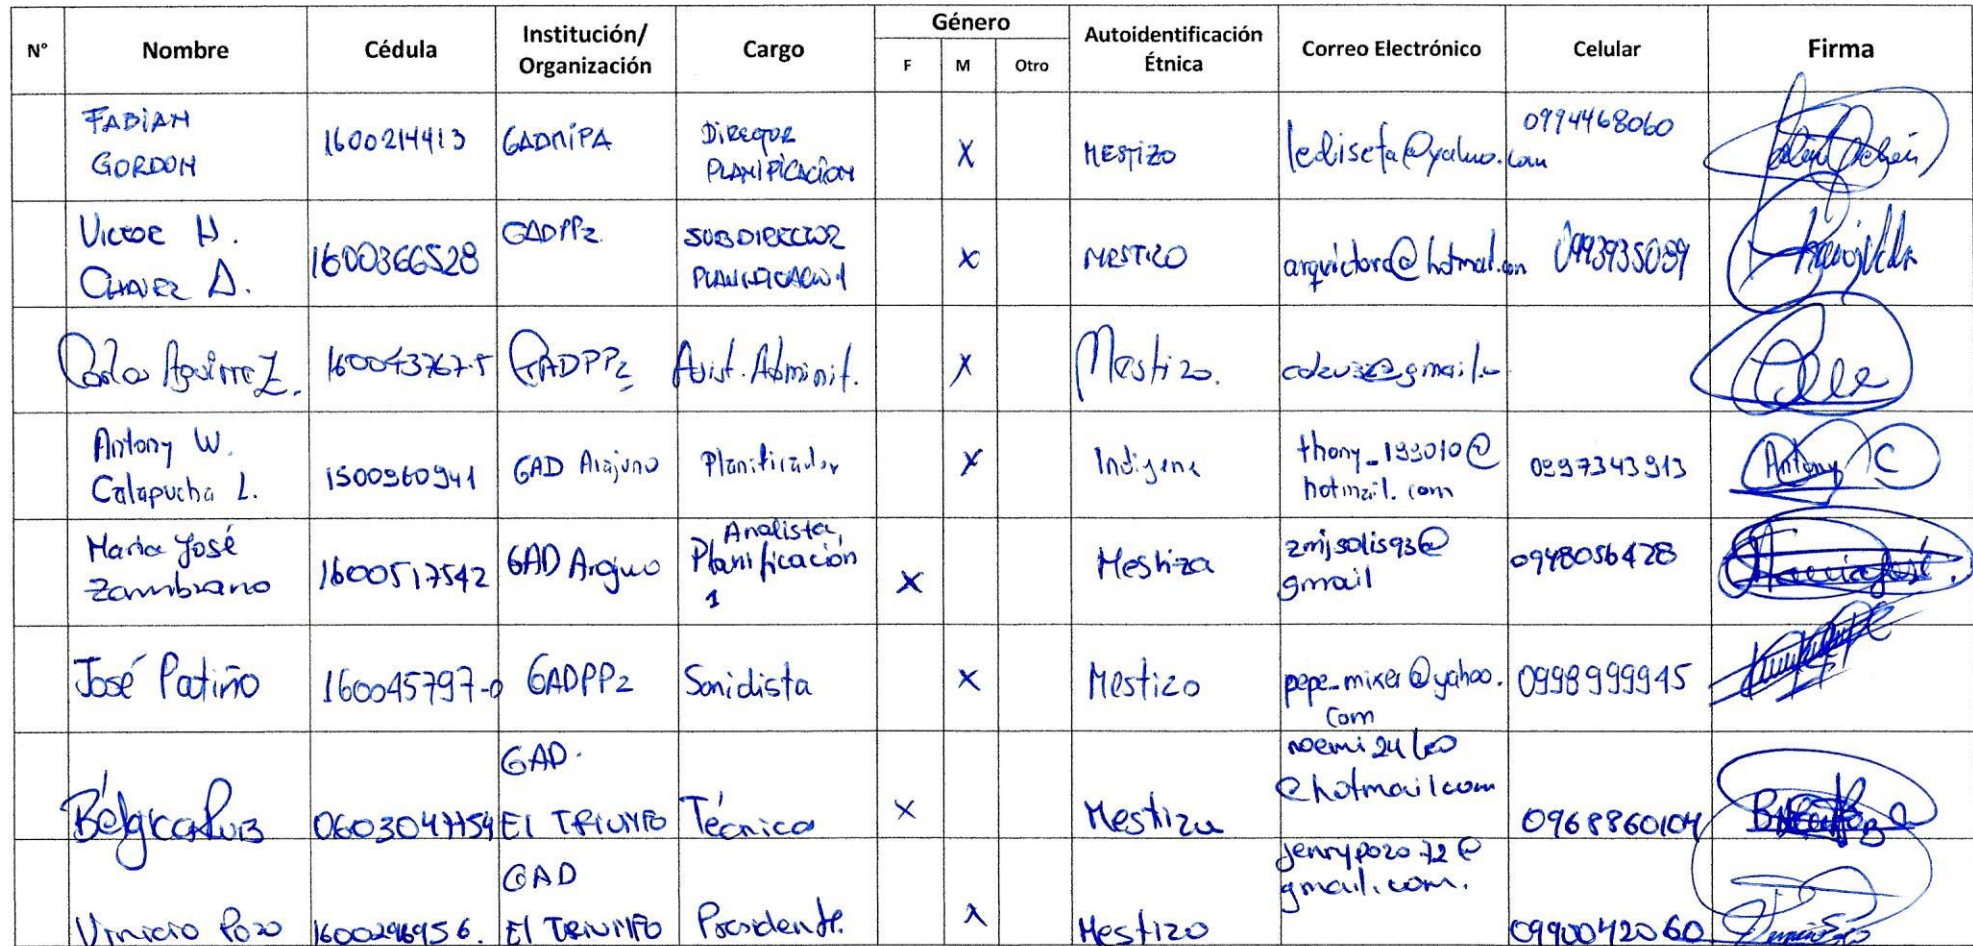 N° Nombre Cédula Institución/ Organización Cargo Género F M Otro Autoidentificación Étnica Correo Electrónico Celular Firma
FABIAN GORDON 1600214413 GADMIPA DIRECTOR PLANIFICACION X MESTIZO lediseta@yahoo.com 0994468060
VICTOR H. CHAVEZ A. 1600366528 GADPPz SUBDIRECTOR PLANIFICACION 1 X MESTIZO @hotmail.com
Carlos Aguirre Z. 160043767-5 GADPPz Asist. Administ. X Mestizo.
Antony W. Calapucha L. 1500960941 GAD Arajuno Planificador X Indigena thony_199010@ hotmail.com 0997343913 Antony C
Maria José Zambrano 1600517542 GAD Arajuno Analista Planificación 1 X Mestiza zmjsolis93@ gmail 0948056428 Maria José.
José Patiño 160045797-0 GADPPz Sonidista X Mestizo pepe_mixer@yahoo. com 0998999945
Bélgica Ruiz GAD. El TRIUNFO Técnica X Mestiza @hotmailcom 0968860104
Vinicio Pozo GAD El TRIUNFO Presidente. X Mestizo jenrypozo72@ gmail.com. 0990042060